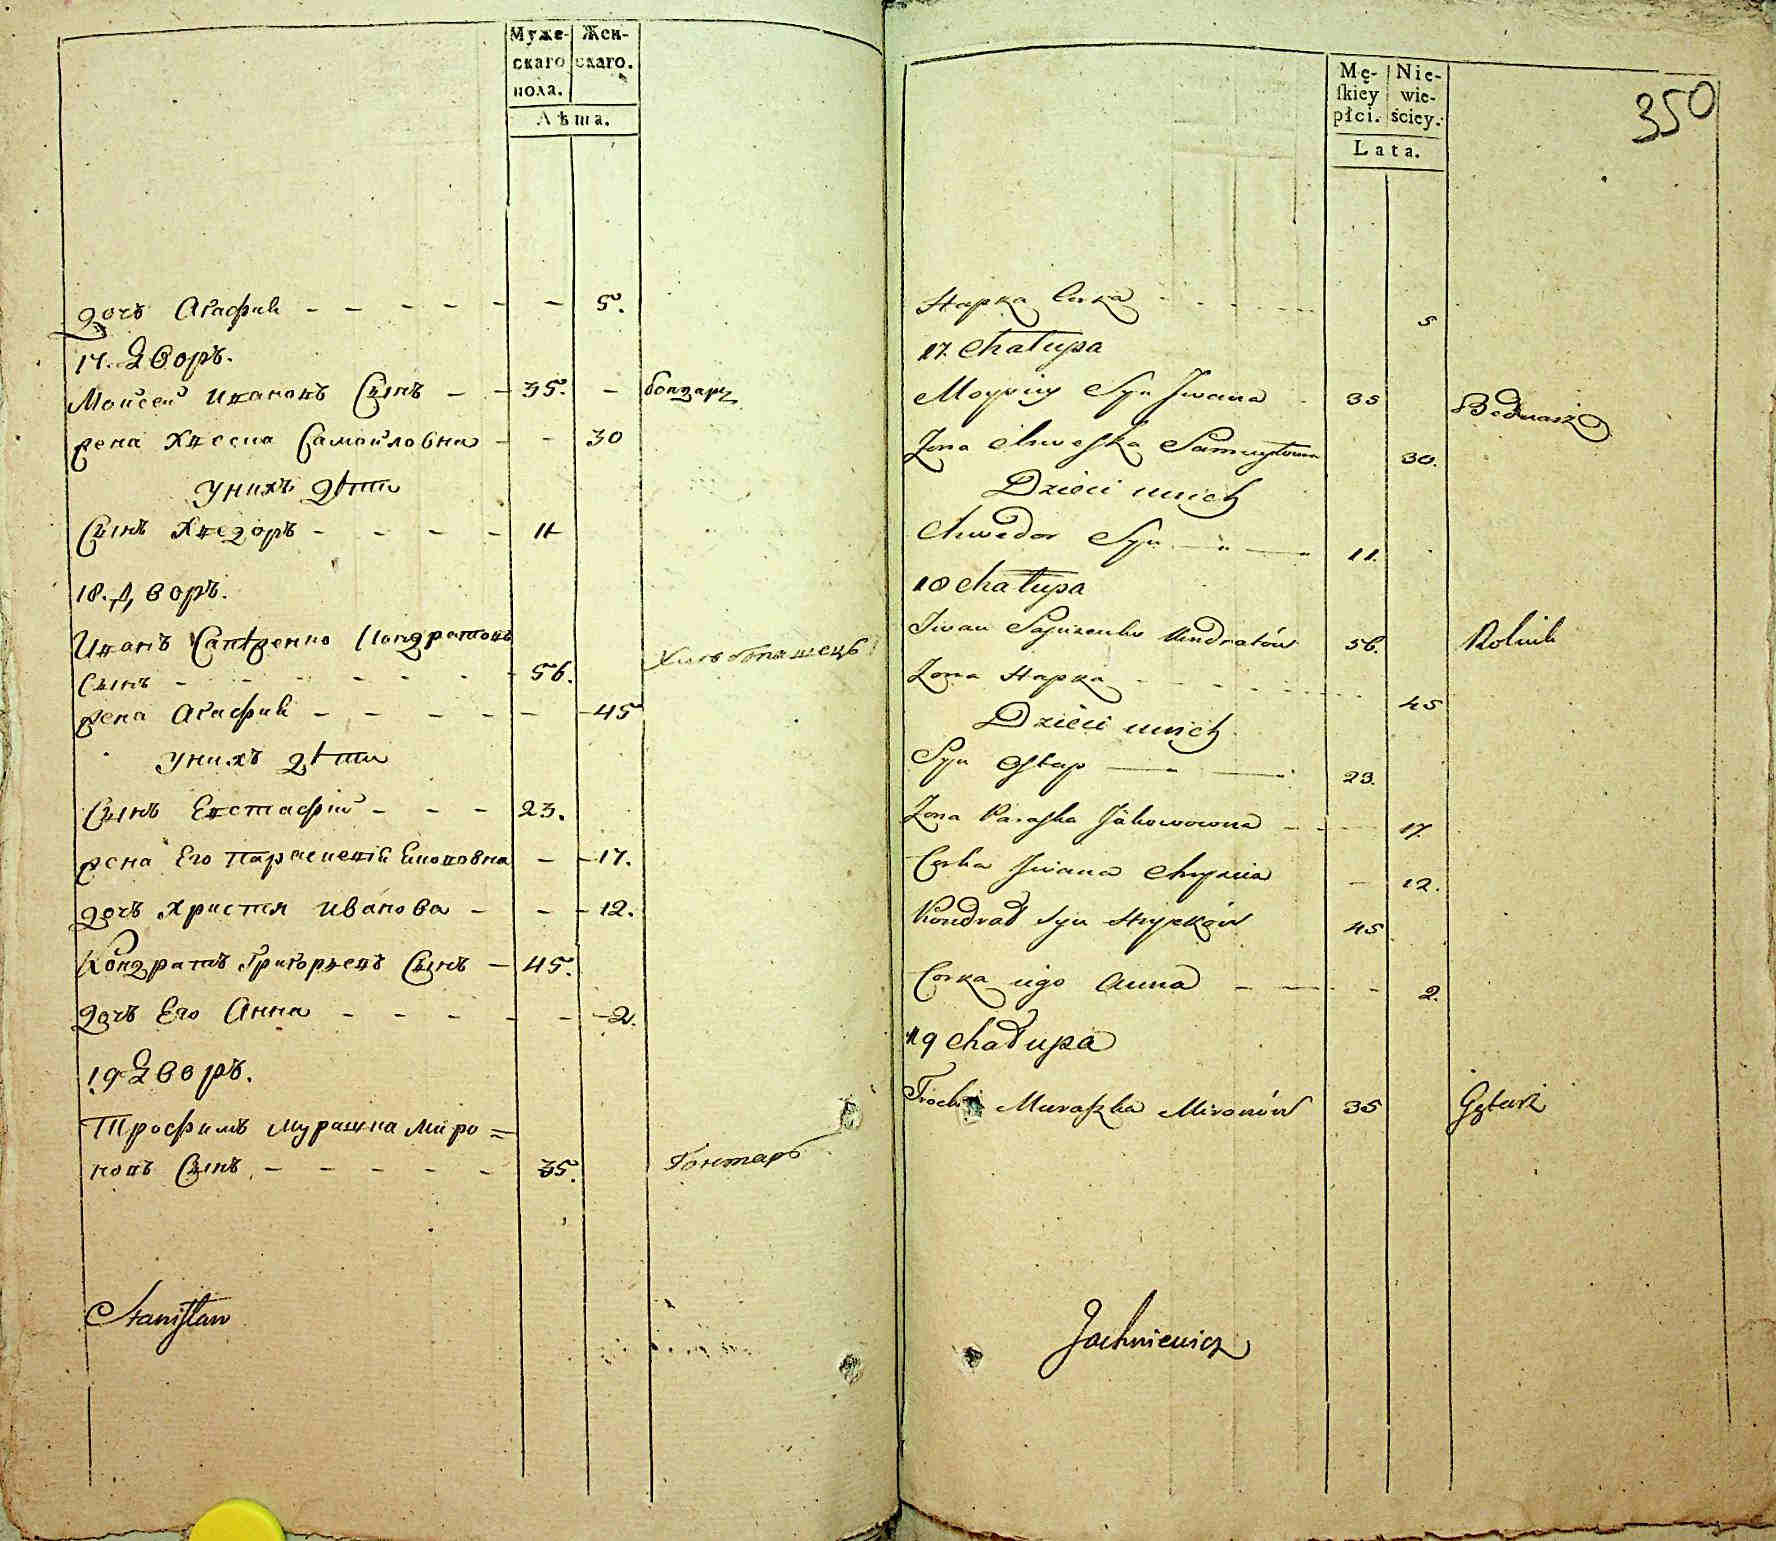 Муже-
скаго
пола.
Жен-
скаго.
Лѣта.
дочь Агафия - - - - - - 5.
17. Дворъ.
Моисей Ивановъ Сынъ - - 35. - бондарь
жена Хвесна Самойловна - - 30
У нихъ дѣти
Сынъ Хведоръ - - - - 11
18. Дворъ.
Иванъ Кондратовъ
Сынъ - - - - - - 56. Хлѣбопашецъ
жена Агафия - - - - - - 45
У нихъ дѣти
Сынъ Евстафий - - - 23.
жена Его Параскевия - - 17.
дочь Христя Иванова - - - 12.
Кондратъ Григорьевъ Сынъ - 45.
дочь Его Анна - - - - - - 2.
19 Дворъ.
Трофимъ Мурашка Миро=
новъ Сынъ - - - - - 35. Гонтарь
Stanisław
350
Mę-
skiey
płci.
Nie-
wie-
ściey.
Lata.
Hapka Corka - - - 5
17. Chałupa
Moysiey Syn Iwana - 35 Bednarz
Żona Chweska Samuyłowna 30.
Dzieci u nich
Chwedor Syn - - 11.
18 Chałupa
Iwan Kondratów 56. Rolnik
Żona Hapka - - - - 45
Dzieci u nich
Syn Ostap - - 23.
Żona Paraska Jakowowna - - 17.
Corka Iwana Chrycia - 12.
Kondrat Syn Hryckow 45
Corka iego Anna - - - - 2.
19 Chałupa
Muraszka Mironów 35 Gętarz
Jachniewicz